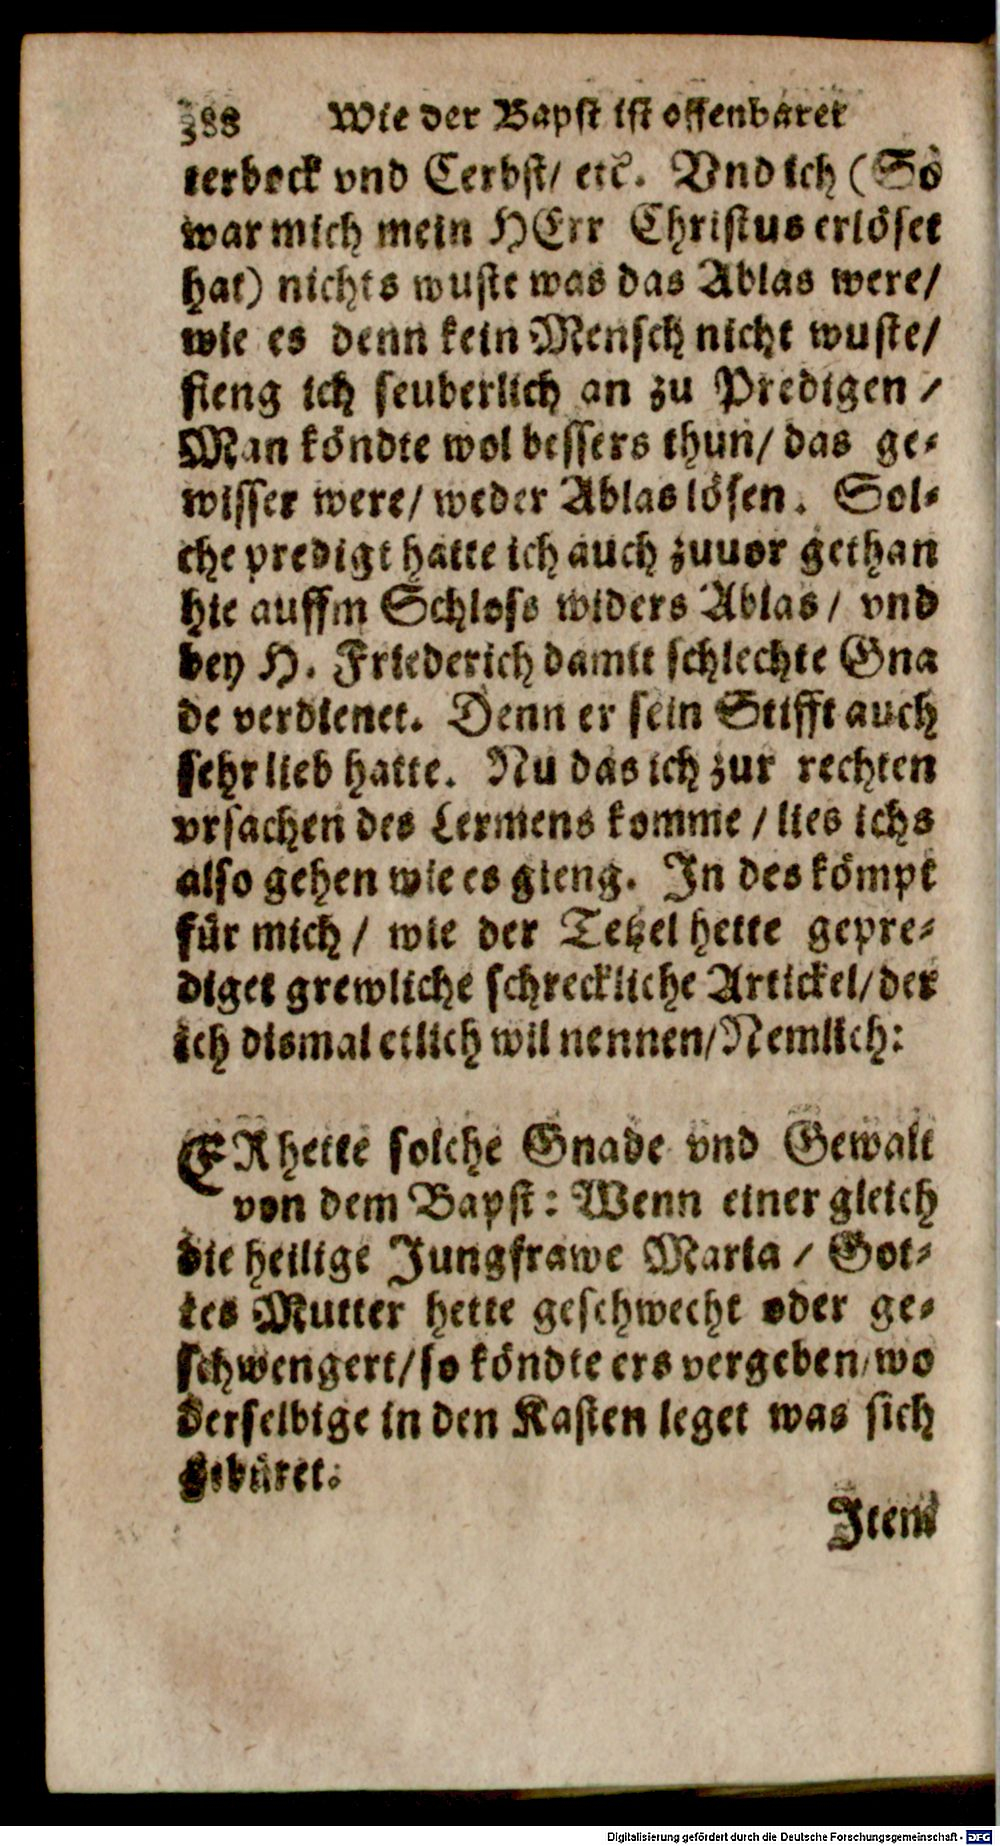 388 Wie der Bapst ist offenbaret
terbock vnd Cerbst/ etc. Vnd ich (So
war mich mein HErr Christus erlöset
hat) nichts wuste was das Ablas were/
wie es denn kein Mensch nicht wuste/
fieng ich seuberlich an zu Predigen /
Man köndte wol bessers thun/ das ge-
wisser were/ weder Ablas lösen. Sol-
che predigt hatte ich auch zuuor gethan
hie auffm Schloss widers Ablas/ vnd
bey H. Friederich damit schlechte Gna
de verdienet. Denn er sein Stifft auch
sehr lieb hatte. Nu das ich zur rechten
vrsachen des Lermens komme / lies ichs
also gehen wie es gieng. In des kömpt
für mich / wie der Tetzel hette gepre-
diget grewliche schreckliche Artickel/ der
ich dismal etlich wil nennen/ Nemlich:
ER hette solche Gnade vnd Gewalt
von dem Bapst: Wenn einer gleich
die heilige Jungfrawe Maria / Got-
tes Mutter hette geschwecht oder ge-
schwengert/ so köndte ers vergeben/ wo
derselbige in den Kasten leget was sich
gebüret.
Item
Digitalisierung gefördert durch die Deutsche Forschungsgemeinschaft - DFG